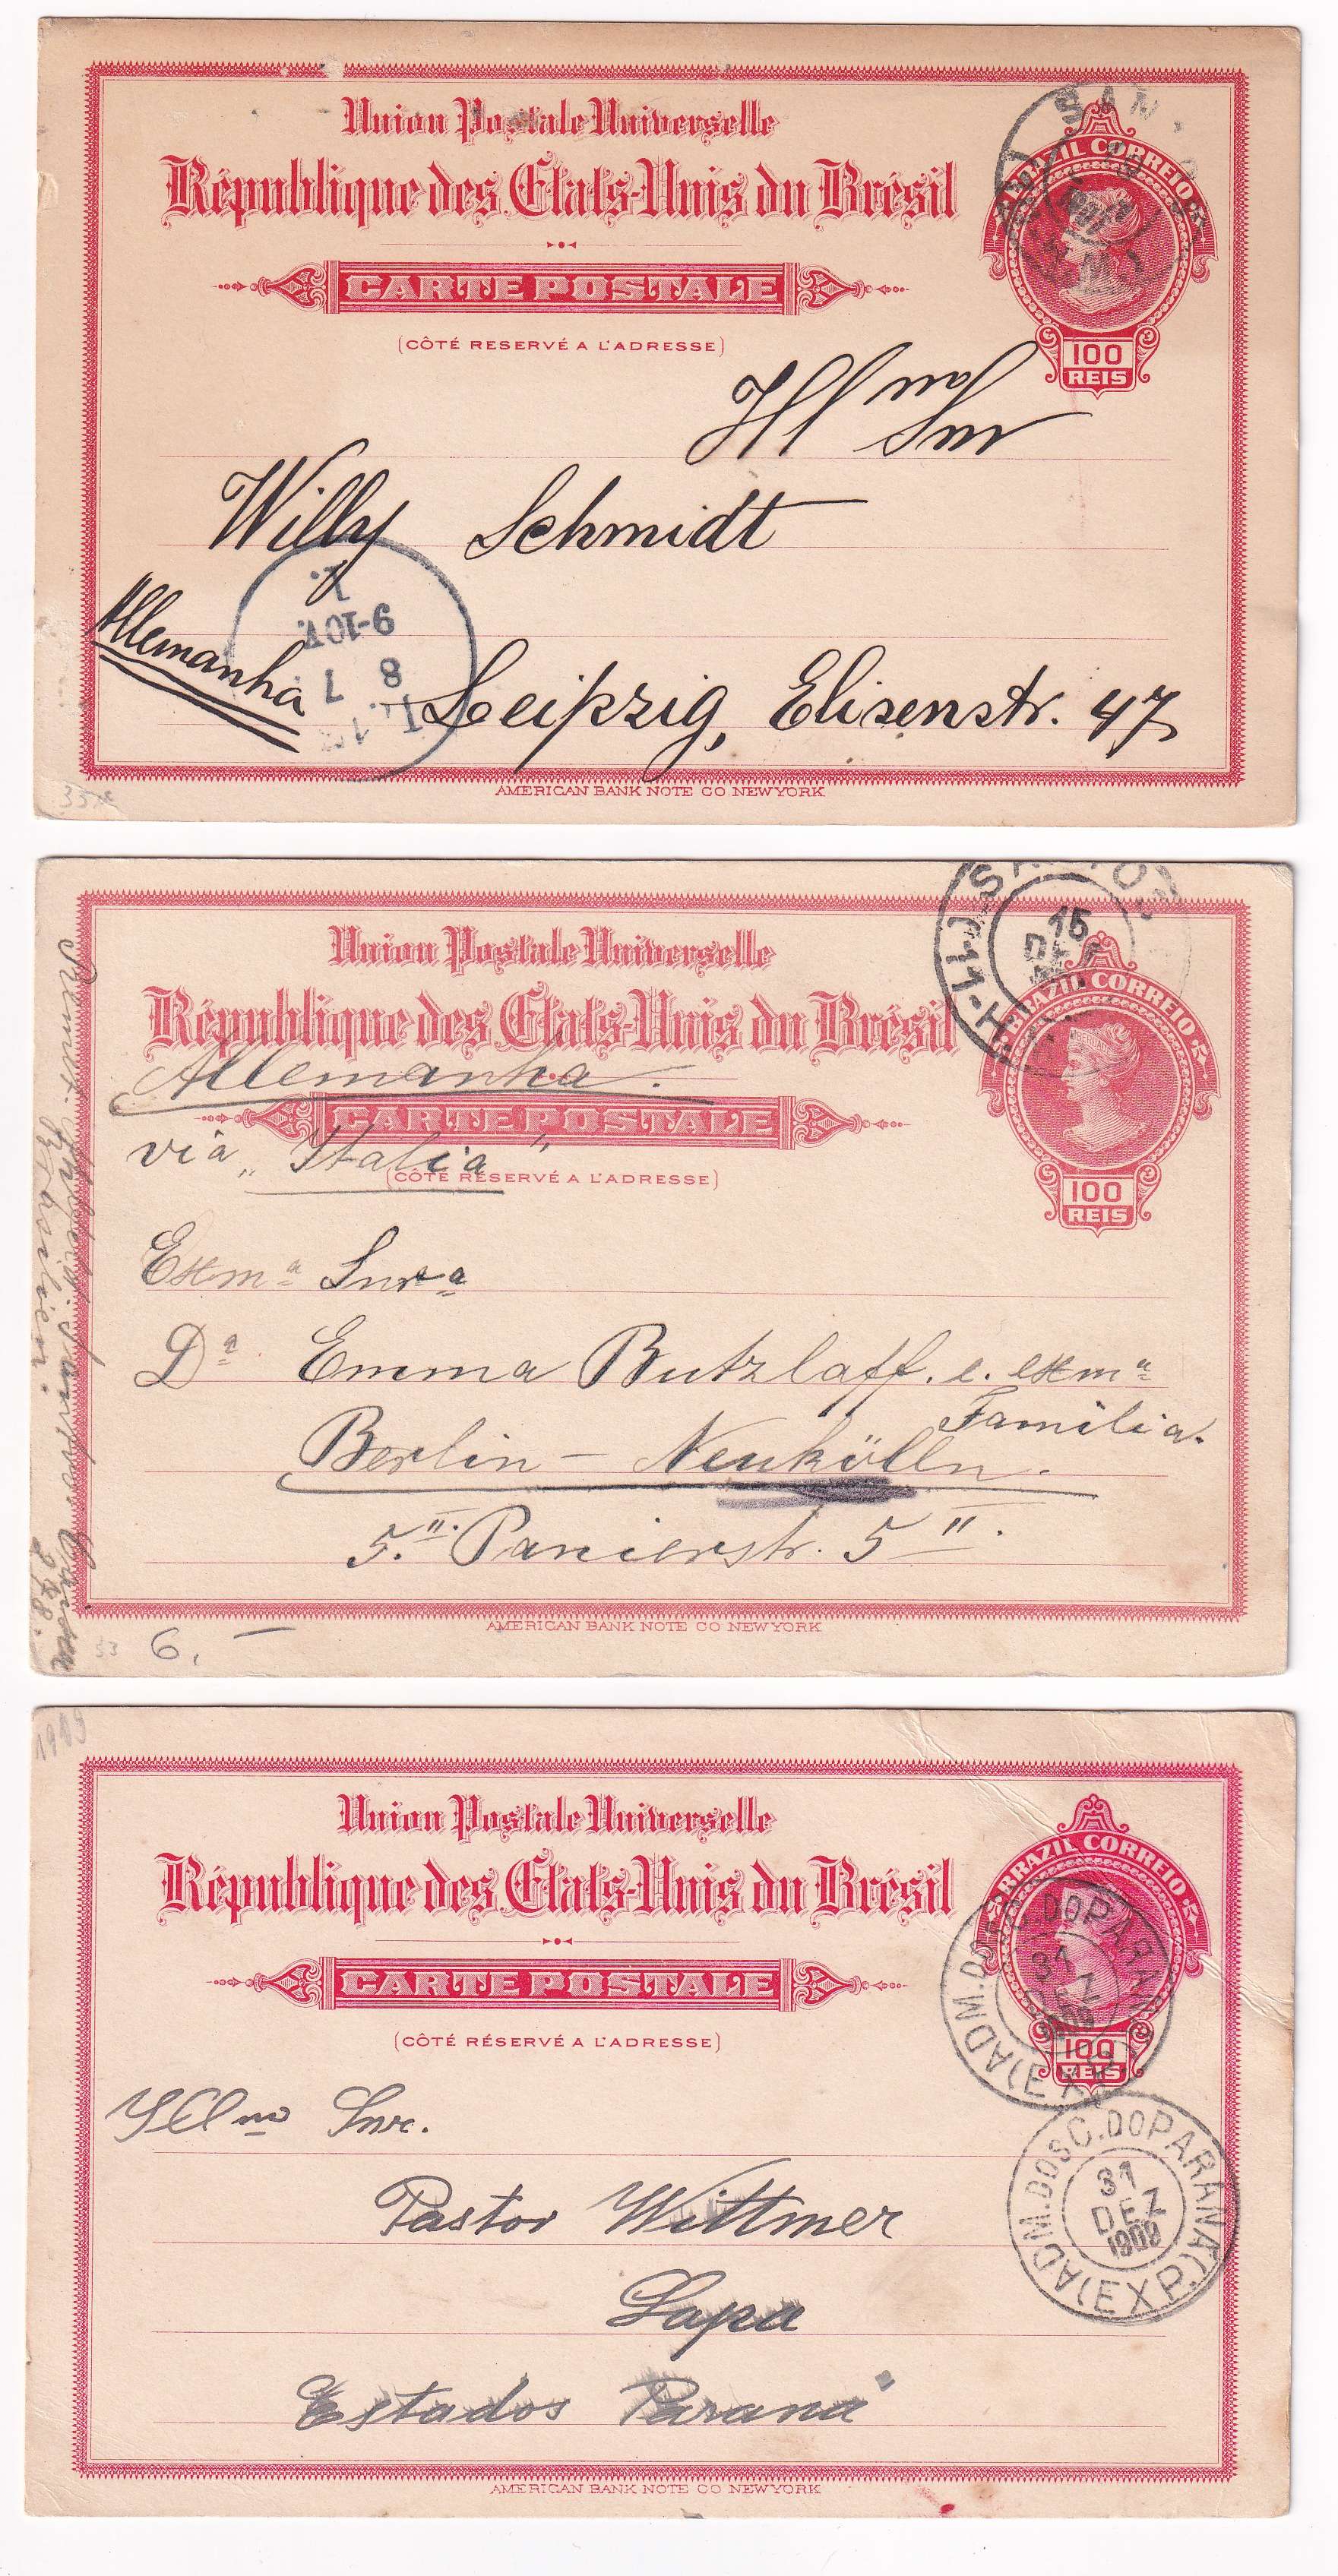 Union Postale Universelle
République des États-Unis du Brésil
CARTE POSTALE
(CÔTÉ RESERVÉ A L'ADRESSE)
BRAZIL CORREIO
100
REIS
Ill mo Snr
Willy Schmidt
Allemanha
Leipzig, Elisenstr. 47
9-10V.
8 7
AMERICAN BANK NOTE CO NEW YORK
SANTOS
15
DEZ
Union Postale Universelle
République des États-Unis du Brésil
BRAZIL CORREIO
Allemanha.
CARTE POSTALE
via „Italia"
(CÔTÉ RESERVÉ A L'ADRESSE)
100
REIS
Exma Snra
Da Emma Butzlaff. e. exma
Familia.
Berlin - Neukölln.
5.II. Panierstr. 5 II.
AMERICAN BANK NOTE CO NEW YORK
53 6. –
Brasilien.
1909
Union Postale Universelle
République des États-Unis du Brésil
BRAZIL CORREIO
CARTE POSTALE
(CÔTÉ RÉSERVÉ A L'ADRESSE)
100
REIS
ADM. DOS C. DO PARANA
31
DEZ
1909
(EXP.)
Illmo Snr.
ADM. DOS C. DO PARANA
31
DEZ
1909
(EXP.)
Pastor Wittmer
Lapa
Estados Paraná
AMERICAN BANK NOTE CO NEW YORK